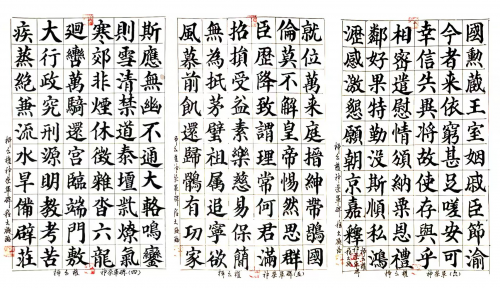 國勲王室姻戚臣節渝
今者來依窮甚足嗟安可
幸信失異將故使存與乎
相密遣慰情領納粟恩禮
鄰好果特勤没斯順私鴻
瀝感激懇願朝京嘉釋
就位萬來庭搢紳帶鶡國
倫莫不解皇帝惕然思群
臣歷降致謂理常何君滿
招損受益素樂慈易保簡
無為扺芴璧祖屬追寧欲
風慕前飢還歸鶻有功家
斯應無幽不通大輅鳴鑾
則雪清禁道泰壇祡燎氣
寒郊非煙休徵雜沓六龍
廻轡萬騎還宮臨端門敷
大行政究刑源明教考苦
疾蒸絶兼流水旱備辟莊